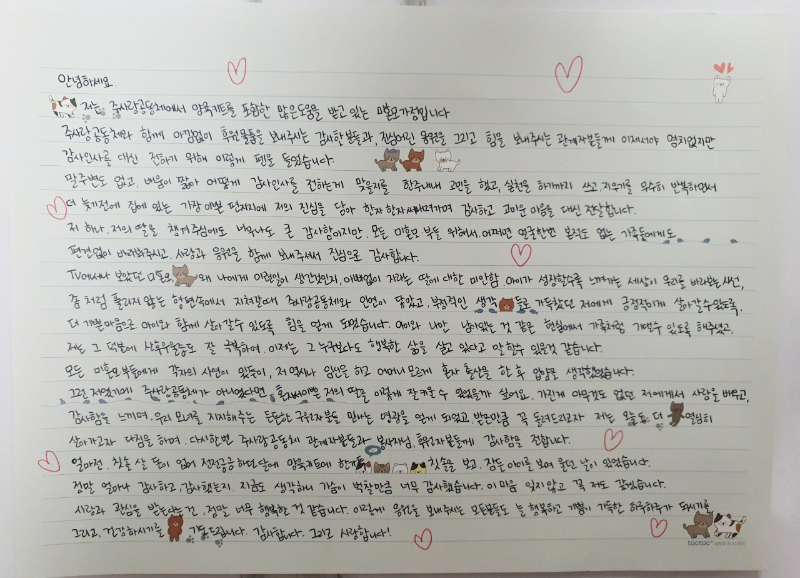 안녕하세요.
저는 주사랑공동체에서 양육키트를 포함한 많은도움을 받고 있는 미혼모가정입니다
주사랑공동체와 함께 아낌없이 후원물품을 보내주시는 감사한분들과, 진심어린 응원을 그리고 힘을 보내주시는 관계자분들께 이제서야 염치없지만
감사인사를 대신 전하기 위해 이렇게 펜을 들었습니다.
말주변도 없고, 배움이 짧아 어떻게 감사인사를 전하는게 맞을지를 한주내내 고민을 했고, 실천을 하기까지 쓰고 지우기를 무수히 반복하면서
더 늦기전에 집에 있는 가장 이쁜 편지지에 저의 진심을 담아 한자 한자 써내려가며 감사하고 고마운 마음을 대신 전달합니다.
저 하나, 저의 딸을 챙겨주심에도 너무나도 큰 감사함이지만, 모든 미혼모.부를 위해서, 어쩌면 얼굴한번 본적도 없는 가족들에게도
편견없이 바라봐주시고, 사랑과 응원을 함께 보내주셔서 진심으로 감사합니다.
TV에서나 보았던 미혼모 왜 나에게 이런일이 생긴것인지, 아빠없이 자라는 딸에 대한 미안함 아이가 성장할수록 느껴지는 세상이 우리를 바라보는 시선,
좀처럼 풀리지 않는 형편속에서 지쳐갈때 주사랑공동체와 인연이 닿았고, 부정적인 생각들로 가득찼던 저에게 긍정적이게 살아갈수있도록,
더 기쁜마음으로 아이와 함께 살아갈수 있도록 힘을 얻게 되었습니다. 아이와 나만 남아있는 것 같은 현실에서 가족처럼 기댈수 있도록 해주셨고,
저는 그 덕분에 산후우울증도 잘 극복하여, 이제는 그 누구보다도 행복한 삶을 살고 있다고 말할수 있을것 같습니다.
모든 미혼모.부들에게 각자의 사연이 있듯이, 저 역시나 임신을 하고 어머니 모르게 혼자 출산을 한 후 입양을 생각했었습니다.
그런 저였기에 주사랑공동체가 아니였다면 혼자서이쁜 저의 딸을 이렇게 잘 키울 수 있었을까 싶어요. 가진게 아무것도 없던 저에게서 사랑을 배우고,
감사함을 느끼며, 우리 모녀를 지지해주는 든든한 후원자분들 만나는 영광을 얻게 되었고, 받은만큼 꼭 돌려드리고자 저는 오늘도 더 열심히
살아가고자 다짐을 하며, 다시한번 주사랑공동체 관계자분들과 봉사자님, 후원자분들께 감사함을 전합니다.
얼마전, 칫솔 살 돈이 없어 전전긍긍하던 달에 양육키트에 한개 칫솔을 보고, 잠든 아이를 보며 울던 날이 있었습니다.
정말 얼마나 감사하고, 감사했는지. 지금도 생각하면 가슴이 벅찰만큼 너무 감사했습니다. 이 마음 잊지않고 꼭 저도 갚겠습니다.
사랑과 관심을 받는다는건, 정말 너무 행복한 것 같습니다. 이렇게 응원을 보내주시는 모든분들도 늘 행복하고 기쁨이 가득한 하루하루가 되시기를
그리고, 건강하시기를 기도드립니다. 감사합니다. 그리고 사랑합니다!